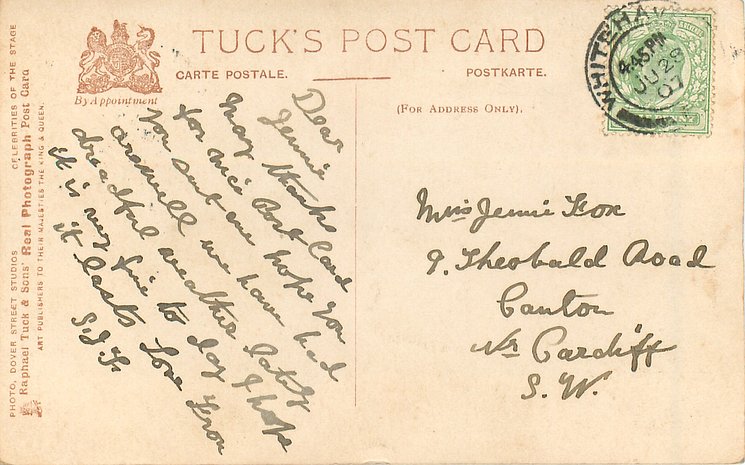 TUCK'S POST CARD
CARTE POSTALE.
POSTKARTE.
By Appointment
(FOR ADDRESS ONLY).
PHOTO, DOVER STREET STUDIOS CELEBRITIES OF THE STAGE
Raphael Tuck & Sons' Real Photograph Post Card
ART PUBLISHERS TO THEIR MAJESTIES THE KING & QUEEN.
WHITEHAV
4.45 PM
JU 28
07
Dear
Jennie
Many thanks
for nice Post Card
you sent me hope you
are well we have had
dreadful weather lately
it is very fine to day I hope
it lasts Love from
Miss Jennie Fox
9. Theobald Road
Canton
Nr Cardiff
S. W.